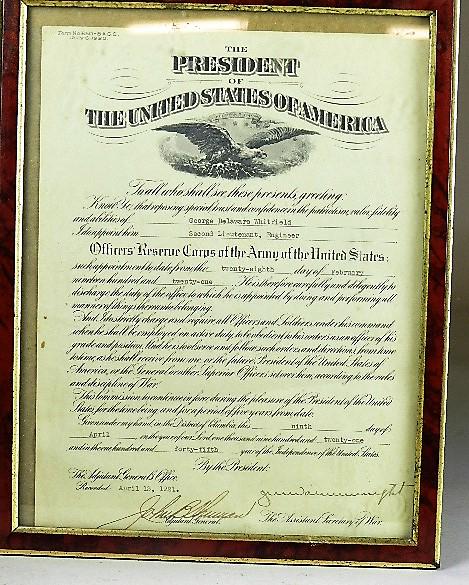 THE
PRESIDENT
OF
THE UNITED STATES OF AMERICA
To all who shall see these presents, greeting:
Know Ye, that reposing special trust and confidence in the patriotism, valor, fidelity
and abilities of George Delaware Whitfield
I do appoint him Second Lieutenant, Engineer
Officers' Reserve Corps of the Army of the United States:
such appointment to date from the twenty-eighth day of February
nineteen hundred and twenty-one. He is therefore carefully and diligently to
discharge the duty of the office to which he is appointed by doing and performing all
manner of things thereunto belonging.
And I do strictly charge and require all Officers and Soldiers under his command
when he shall be employed on active duty, to be obedient to his orders as an officer of his
grade and position. And he is to observe and follow such orders and directions, from time
to time, as he shall receive from me, or the future President of the United States of
America, or the General or other Superior Officers set over him, according to the rules
and discipline of War.
This Commission to continue in force during the pleasure of the President of the United
States, for the time being, and for a period of five years from date.
Given under my hand, at the District of Columbia, this ninth day of
April in the year of our Lord one thousand nine hundred and twenty-one
and in the one hundred and forty-fifth year of the Independence of the United States.
By the President:
The Adjutant General's Office.
Recorded April 13, 1921.
Adjutant General.
The Assistant Secretary of War.